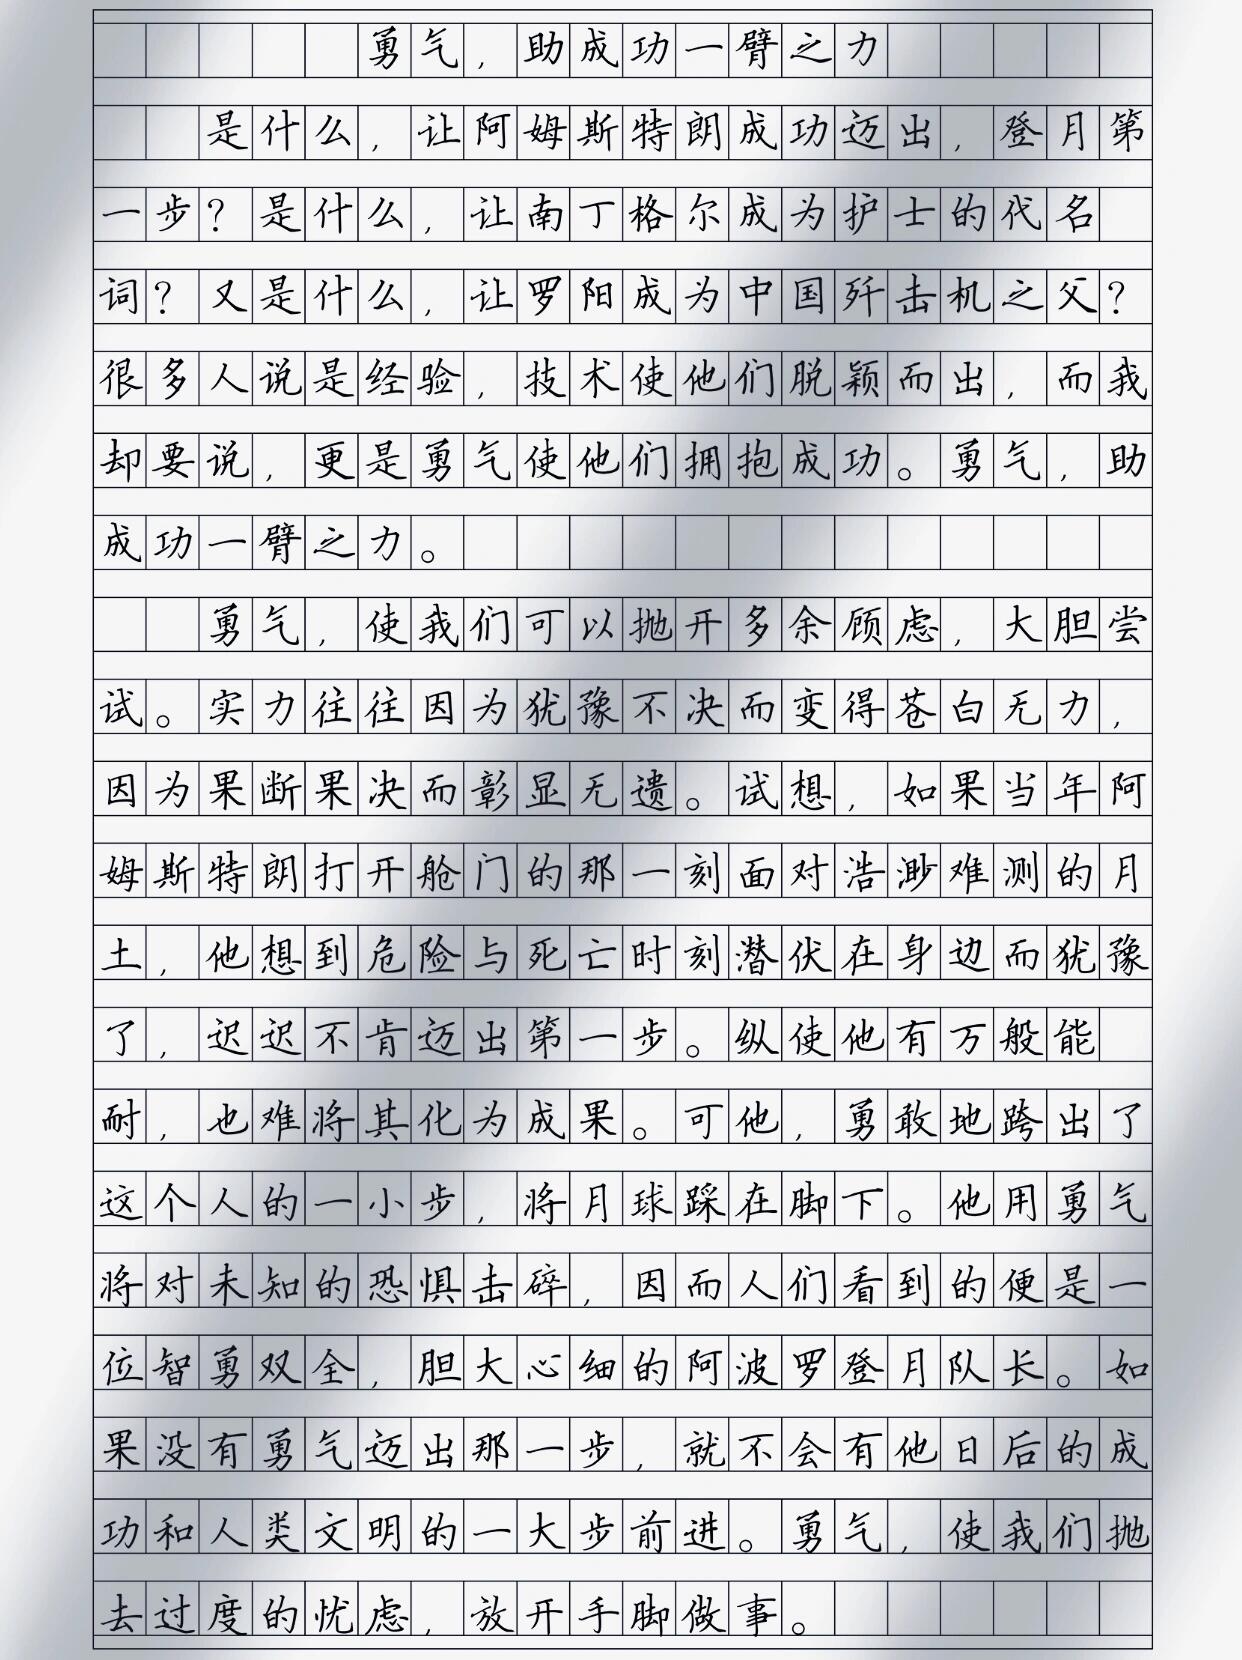 勇气，助成功一臂之力
是什么，让阿姆斯特朗成功迈出，登月第
一步？是什么，让南丁格尔成为护士的代名
词？又是什么，让罗阳成为中国歼击机之父？
很多人说是经验，技术使他们脱颖而出，而我
却要说，更是勇气使他们拥抱成功。勇气，助
成功一臂之力。
勇气，使我们可以抛开多余顾虑，大胆尝
试。实力往往因为犹豫不决而变得苍白无力，
因为果断果决而彰显无遗。试想，如果当年阿
姆斯特朗打开舱门的那一刻面对浩渺难测的月
土，他想到危险与死亡时刻潜伏在身边而犹豫
了，迟迟不肯迈出第一步。纵使他有万般能
耐，也难将其化为成果。可他，勇敢地跨出了
这个人的一小步，将月球踩在脚下。他用勇气
将对未知的恐惧击碎，因而人们看到的便是一
位智勇双全，胆大心细的阿波罗登月队长。如
果没有勇气迈出那一步，就不会有他日后的成
功和人类文明的一大步前进。勇气，使我们抛
去过度的忧虑，放开手脚做事。